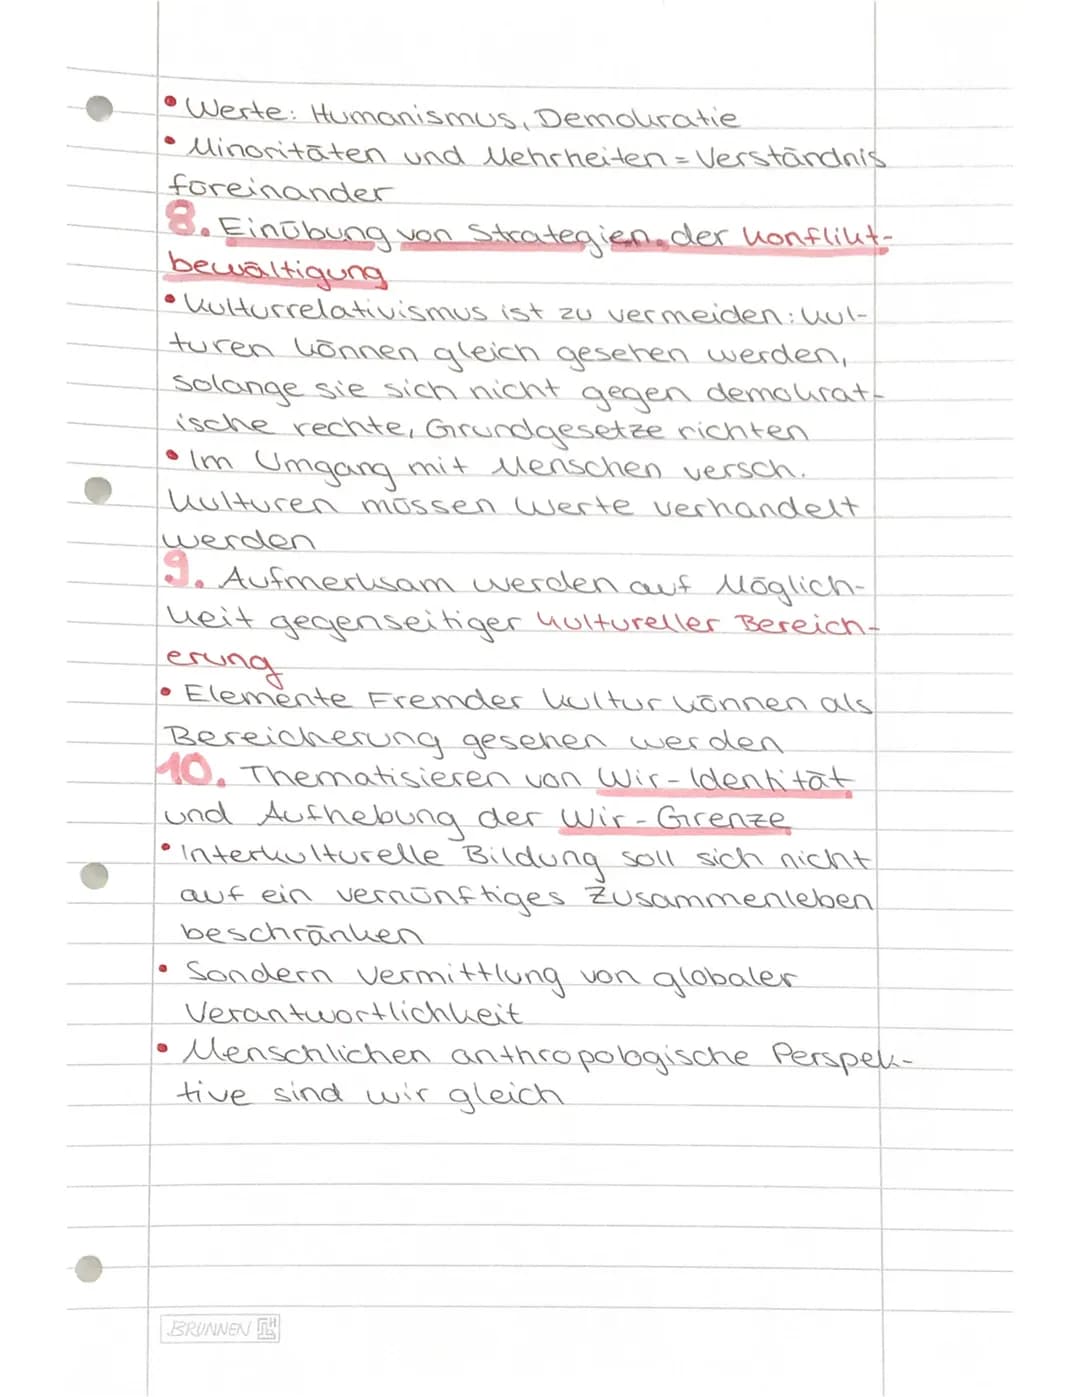 • Werte: Humanismus, Demokratie
• Minoritäten und Mehrheiten = Verständnis
füreinander
8. Einübung von Strategien der Konflikt-
bewältigung
• Kulturrelativismus ist zu vermeiden: Kul-
turen können gleich gesehen werden,
solange sie sich nicht gegen demokrat-
ische rechte, Grundgesetze richten
• Im Umgang mit Menschen versch.
Kulturen müssen Werte verhandelt
werden
9. Aufmerksam werden auf Möglich-
keit gegenseitiger kultureller Bereich-
erung
• Elemente Fremder Kultur können als
Bereicherung gesehen werden
10. Thematisieren von Wir-Identität
und Aufhebung der Wir-Grenze
• Interkulturelle Bildung soll sich nicht
auf ein vernünftiges Zusammenleben
beschränken
• Sondern Vermittlung von globaler
Verantwortlichkeit
• Menschlichen anthropologische Perspek-
tive sind wir gleich
BRUNNEN